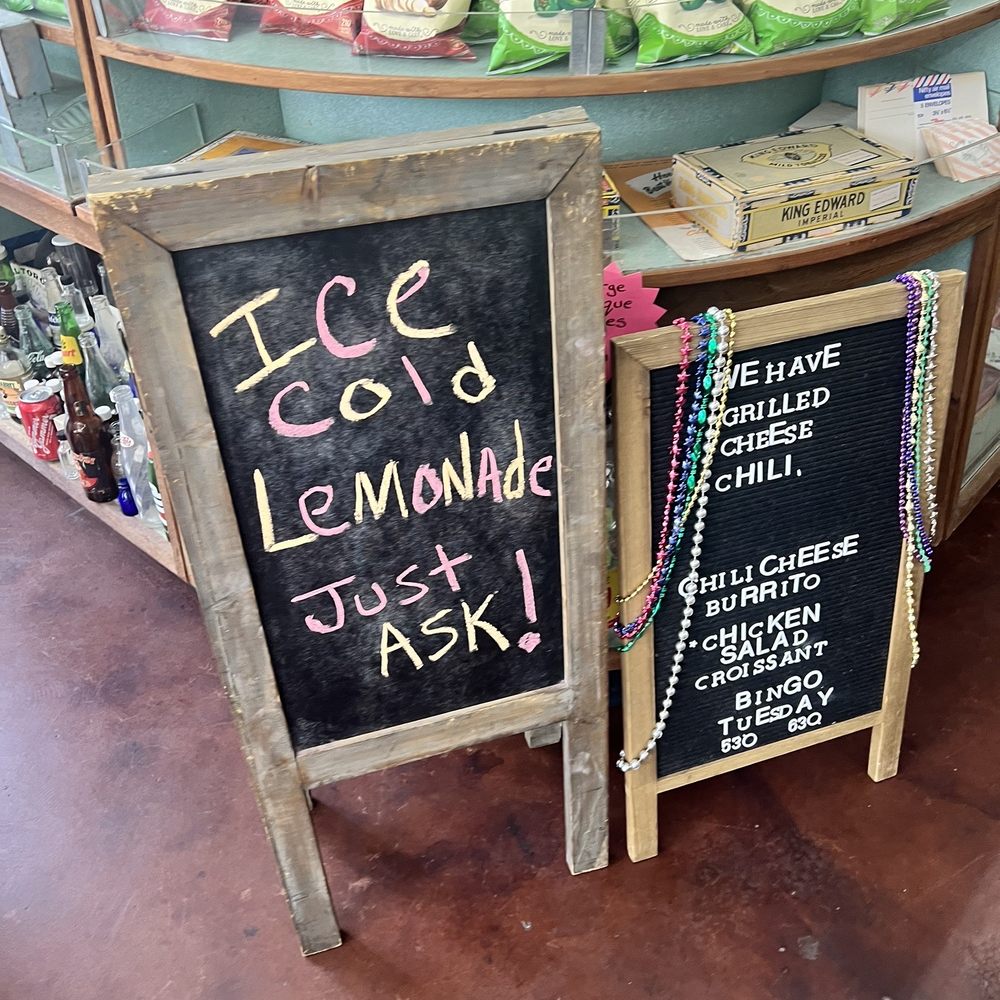 Ice
Cold
LeMONAde
Just
ASK!
WE HAVE
GRILLED
CHEESE
CHILI.
CHILI CHEESE
BURRITO
*CHICKEN
SALAD
CROISSANT
BINGO
TUESDAY
530 630
KING EDWARD
IMPERIAL
KING EDWARD
Nifty air mail
envelopes